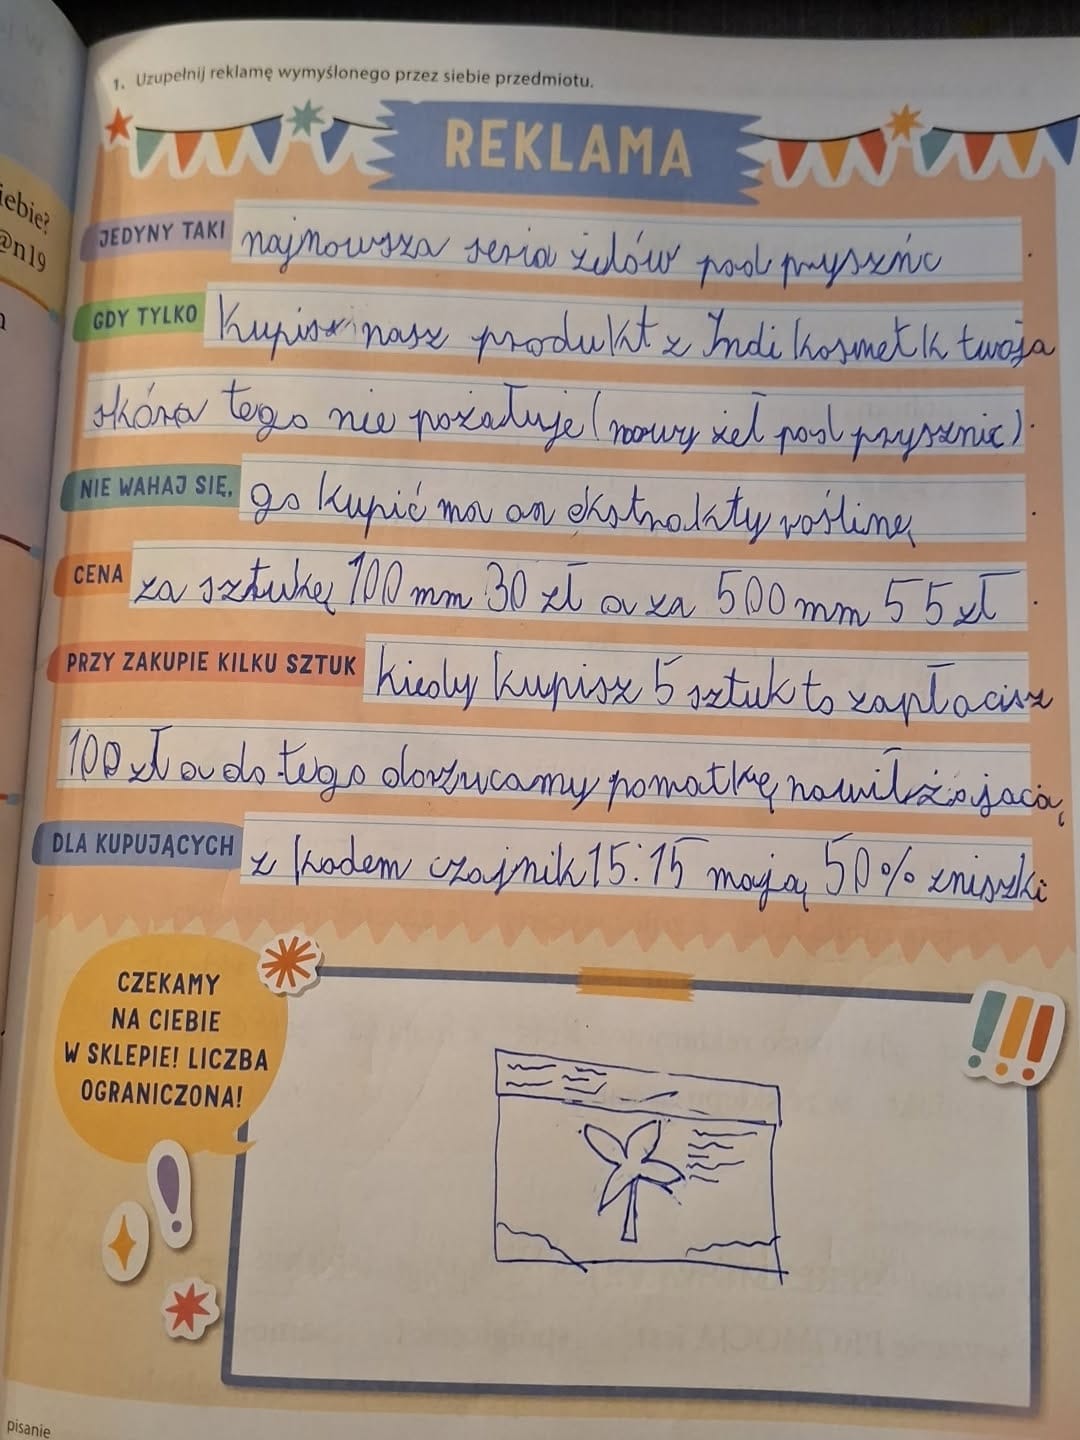 iebie?
@n19
1. Uzupełnij reklamę wymyślonego przez siebie przedmiotu.
REKLAMA
JEDYNY TAKI najnowsza seria żelów pod pryszńc.
GDY TYLKO Kupisz nasz produkt z Indi kosmetk twoja
skóra tego nie pożałuje (nowy żel pod prysznic).
NIE WAHAJ SIĘ, go kupić ma on ekstrakty roślinę.
CENA za sztukę 100 mm 30 zł a za 500 mm 55 zł.
PRZY ZAKUPIE KILKU SZTUK kiedy kupisz 5 sztuk to zapłacisz
100 zł a do tego dorzucamy pomatkę nawilżającą
DLA KUPUJĄCYCH z kodem czajnik 15:15 mają 50% zniszki
CZEKAMY
NA CIEBIE
W SKLEPIE! LICZBA
OGRANICZONA!
!!!
!
pisanie